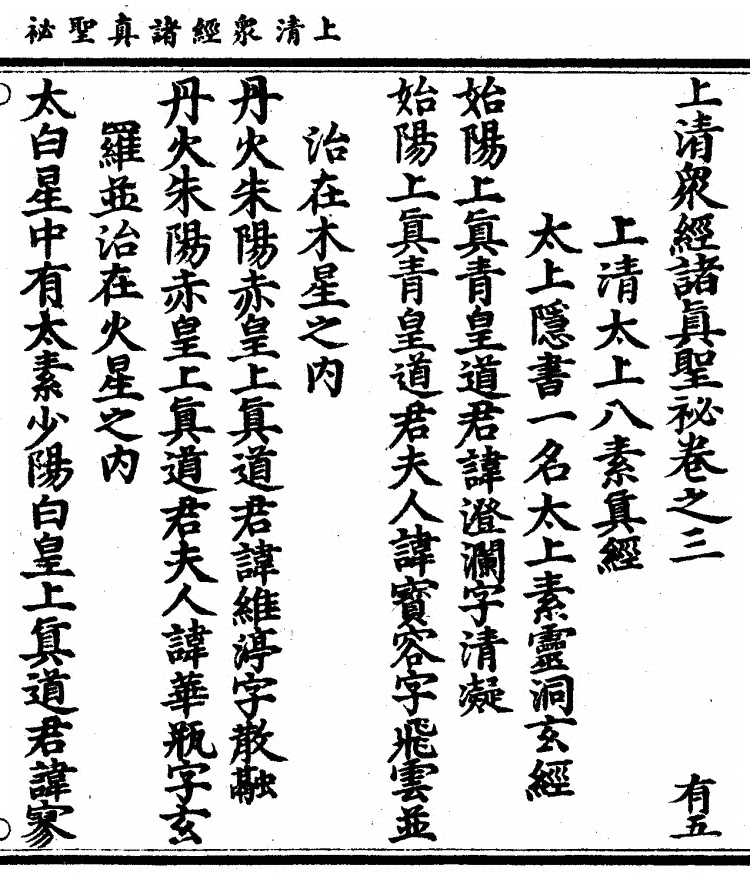 上清衆經諸真聖祕
上清衆經諸眞聖祕卷之三 有五
上清太上八素眞經
太上隱書一名太上素靈洞玄經
始陽上眞青皇道君諱澄瀾字清凝
始陽上眞青皇道君夫人諱寳容字飛雲並
治在木星之内
丹火朱陽赤皇上眞道君諱維渟字散融
丹火朱陽赤皇上眞道君夫人諱華瓶字玄
羅並治在火星之内
太白星中有太素少陽白皇上眞道君諱寥